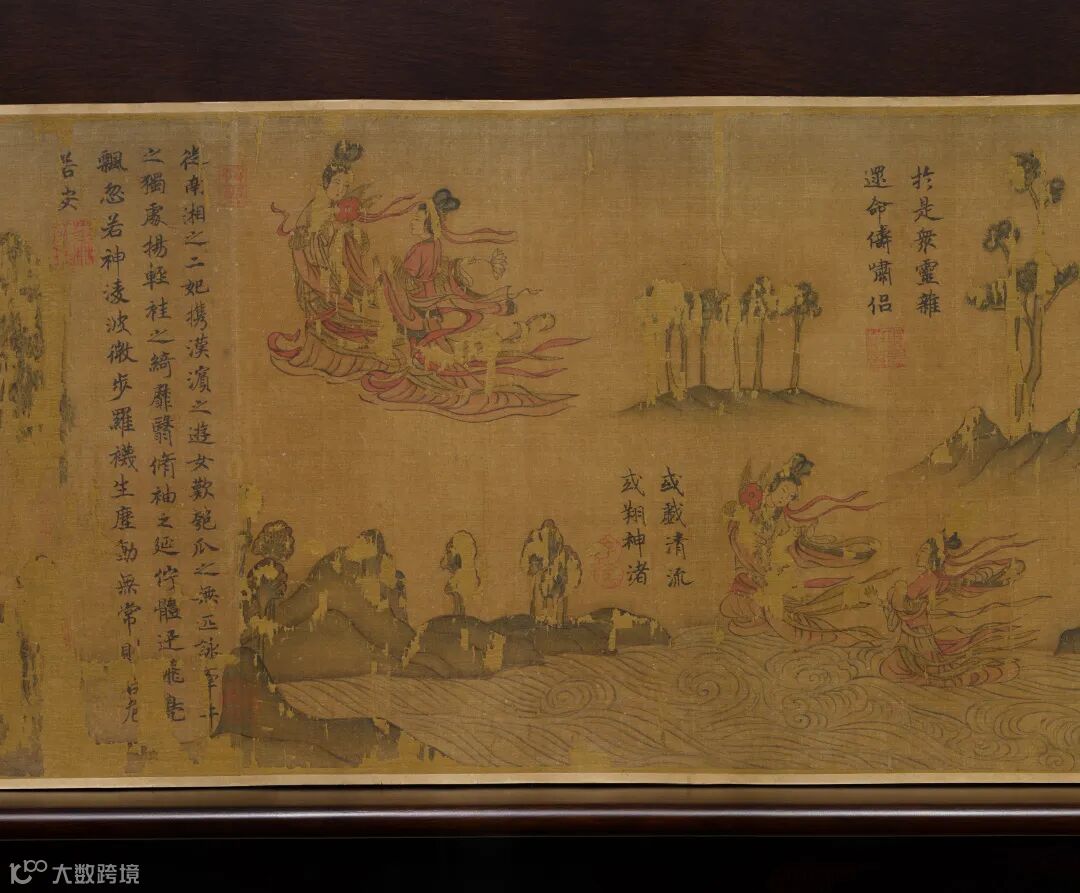 於是衆靈雜
遝命儔嘯侣
或戲清流
或翔神渚
從南湘之二妃携漢濱之遊女歎匏瓜之無匹詠牽牛
之獨處揚輕袿之綺靡翳脩袖之延佇體迅飛鳧
飄忽若神凌波微步羅襪生塵動無常則若危
若安
大数跨境